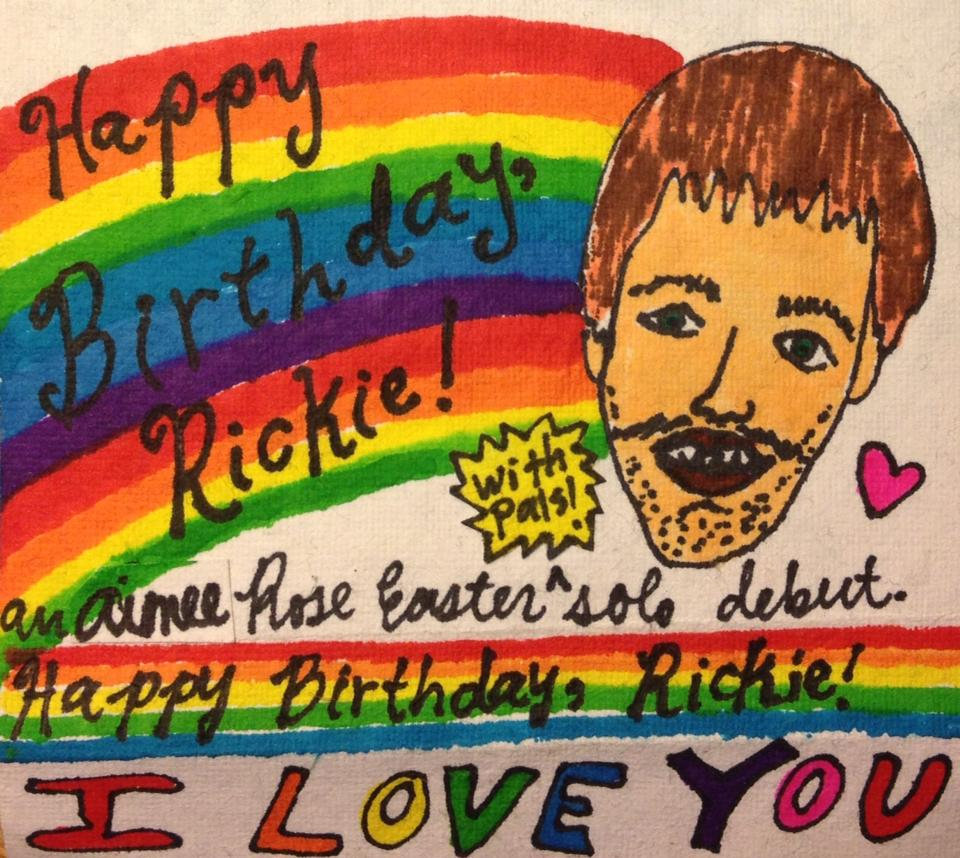 Happy
Birthday,
Rickie!
with
pals!
an aimee Rose Easter ^ solo debut.
Happy Birthday, Rickie!
I LOVE YOU